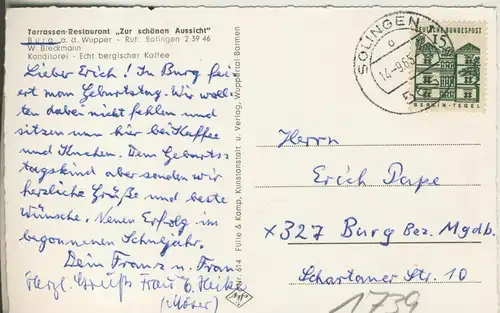 Terrassen-Restaurant "Zur schönen Aussicht"
Burg a. d. Wupper - Ruf: Solingen 2 39 46
W. Bleckmann
Konditorei - Echt bergischer Kaffee
Lieber Erich! In Burg fei
ert man Geburtstag. Wir woll-
ten dabei nicht fehlen und
sitzen nun hier bei Kaffee
und Kuchen. Dem Geburts-
tagskind aber senden wir
herzliche Grüße und beste
Wünsche. Neuen Erfolg im
begonnenen Schuljahr.
Dein Franz u. Frau
Herzl. Grüße Frau Heike
(Möser)
614 Fülle & Kamp, Kunstanstalt u. Verlag, Wuppertal-Barmen
Agfa
SOLINGEN
14-9.65
DEUTSCHE BUNDESPOST
15
BERLIN-TEGEL
Herrn
Erich Pape
x327 Burg Bez. Mgdb.
Schartauer Str. 10
1739